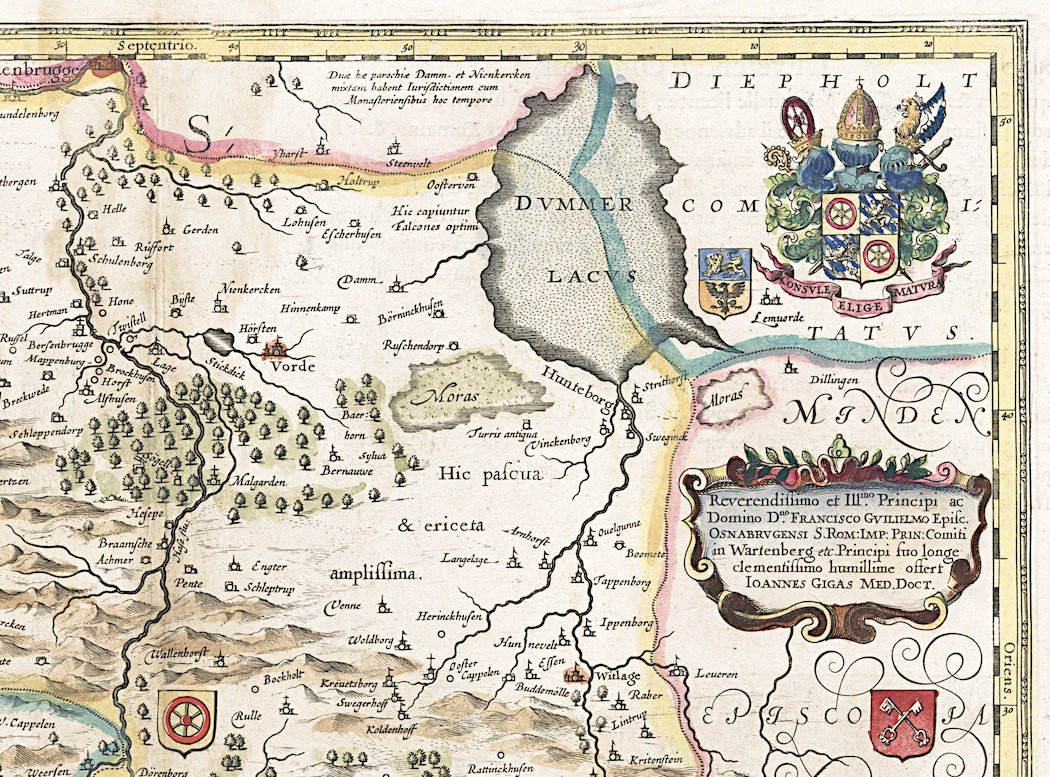 30
Septentrio.
40
50
30
10
20
enbrugge
undelenborg
S.
Duæ hæ parochiæ Damm. et Nienkercken
mixtam habent Iurisdictionem cum
Monasteriensibus hoc tempore
DIEPHOLT
50
Yharst
Steenvelt
Holtrup
Oosterven
bergen
Helle
Gerden
Lohusen
Escherhusen
Hic capiuntur
Falcones optimi
DVMMER
COM
I:
Talge
Rüsfort
Schulenborg
LACVS
CONSVLE
ELIGE
MATVRA
Suttrup
Hone
Bijste
Nienkercken
Hinnenkamp
Damm.
Börninckhusen
Lemvorde
TATVS.
Hertman
Twistell
Hörsten
Vorde
Ruschendorp
Russel
Bersenbrugge
Mappenburg
Brockhusen
Lage
Stickdick
Horst
Alfhusen
Moras
Hunteborg
Strithorst
Moras
Dillingen
MINDEN
40
Schleppendorp
Baer:
horn
Turris antiqua
Vinckenborg
Sweginck
Sögeln
Malgarden
Sylva
Bernauwe
Hic pascua
ertzen
& ericeta
Reverendissimo et Ill.mo Principi ac
Domino D.no FRANCISCO GVILIELMO Episc.
OSNABRVGENSI S.ROM:IMP:PRIN:Comiti
in Wartenberg etc Principi suo longe
clementissimo humillime offert
IOANNES GIGAS MED.DOCT.
Hesepe
Braamsche
Achmer
Hase flu.
Arnhorst
Ouelgunne
Langelage
Boomete
Engter
Pente
Schleptrup
amplissima.
Tappenborg
Venne
Herinckhusen
Ippenborg
Wallenhorst
Woldborg
Hunsnevelt
Bockholt
Kreuetsborg
Ooster
Cappelen
Essen
Witlage
Leueren
Oriens.
Rulle
Swegerhoff
Koldenhoff
Buddemölle
Raber
EPISCO
PA
30
V. Cappelen
Lintrup
Weersen
Dörenborg
Rattinckhusen
Kritenstein